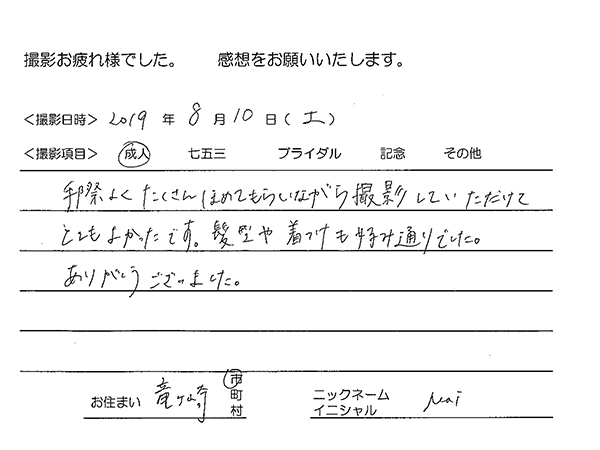 撮影お疲れ様でした。 感想をお願いいたします。
＜撮影日時＞ 2019 年 8 月 10 日（土）
＜撮影項目＞ 成人 七五三 ブライダル 記念 その他
手際よく たくさん ほめてもらいながら 撮影していただけて
とてもよかったです。髪型や 着つけも 好み通りでした。
ありがとうございました。
お住まい 竜ケ崎 市町村
ニックネーム イニシャル Mai